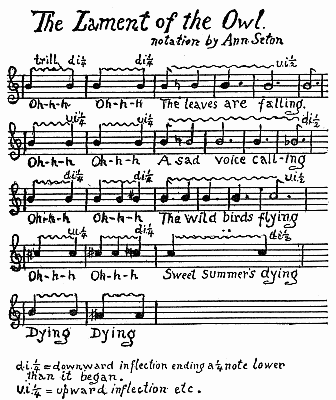 The Lament of the Owl.
notation by Ann Seton
trill di¼ di¼ u.i½
Oh-h-h Oh-h-h The leaves are falling.
ui¼ ui¼ di½
Oh-h-h Oh-h-h A sad voice call-ing
di¼ di¼ ui½
Oh-h-h Oh-h-h The wild birds flying
ui¼ di¼ di½
Oh-h-h Oh-h-h Sweet Summer's dying
Dying Dying
di¼ = downward inflection ending a ¼ note lower
than it began.
u.i¼ = upward inflection etc.